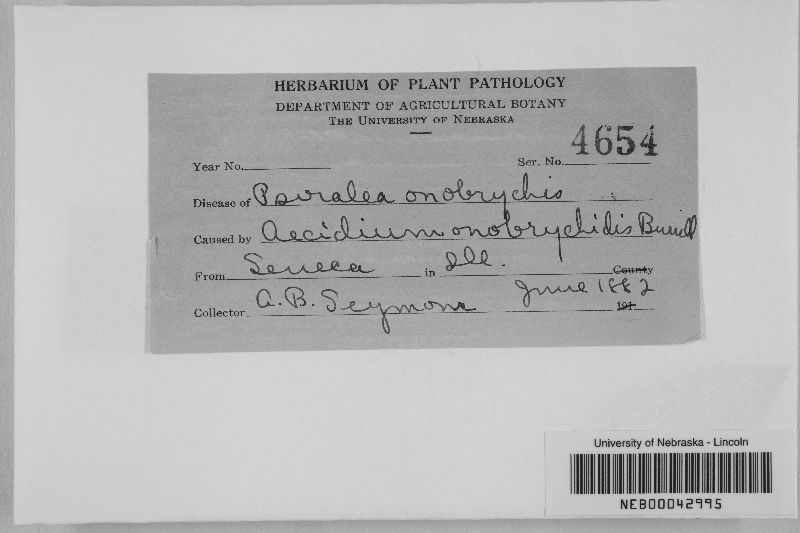 HERBARIUM OF PLANT PATHOLOGY
DEPARTMENT OF AGRICULTURAL BOTANY
THE UNIVERSITY OF NEBRASKA
Year No.
Ser. No. 4654
Disease of Psoralea onobrychis
Caused by Aecidium onobrychidis Burrill
From Seneca in Ill. County
Collector A. B. Seymour June 1882 191
University of Nebraska - Lincoln
NEB00042995